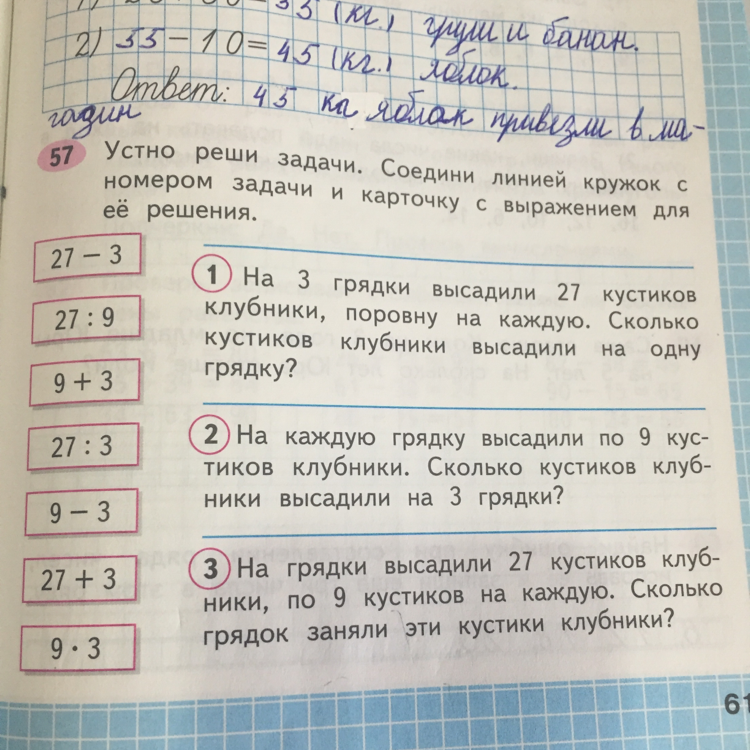 35 (кг.) груш и банан.
2) 55 – 10 = 45 (кг.) яблок.
Ответ: 45 кг яблок привезли в ма-
газин
57 Устно реши задачи. Соедини линией кружок с
номером задачи и карточку с выражением для
её решения.
27 – 3
27 : 9
9 + 3
27 : 3
9 – 3
27 + 3
9 · 3
1 На 3 грядки высадили 27 кустиков
клубники, поровну на каждую. Сколько
кустиков клубники высадили на одну
грядку?
2 На каждую грядку высадили по 9 кус-
тиков клубники. Сколько кустиков клуб-
ники высадили на 3 грядки?
3 На грядки высадили 27 кустиков клуб-
ники, по 9 кустиков на каждую. Сколько
грядок заняли эти кустики клубники?
61